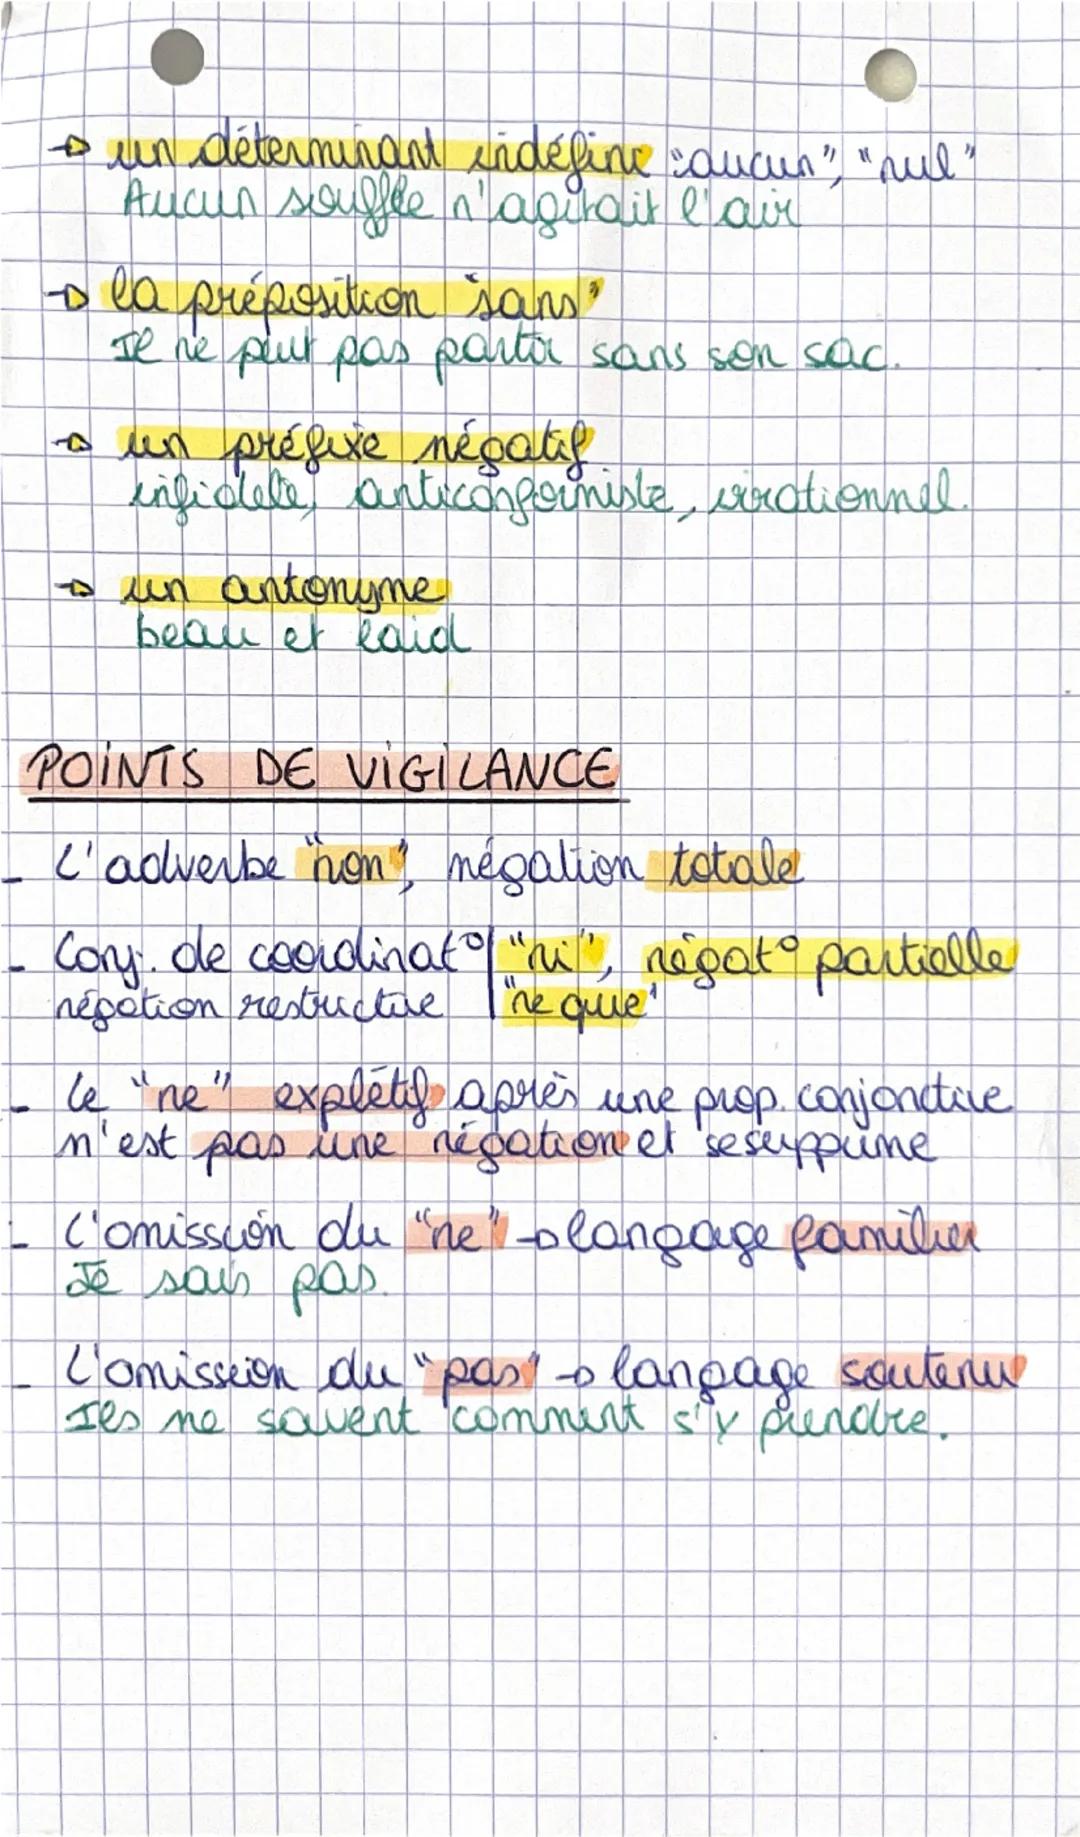 → un déterminant indéfini "aucun", "nul"
Aucun souffle n'agitait l'air
→ la préposition "sans"
Il ne peut pas partir sans son sac.
→ un préfixe négatif
infidèle, anticonformiste, irrationnel.
→ un antonyme
beau et laid
POINTS DE VIGILANCE
- L'adverbe "non", négation totale
- Conj. de coordinat° | "ni", négat° partielle
négation restrictive | "ne que"
- Le "ne" explétif après une prop. conjonctive
n'est pas une négation et se supprime
- L'omission du "ne" → langage familier
Je sais pas.
- L'omission du "pas" → langage soutenu
Ils ne savent comment s'y prendre.